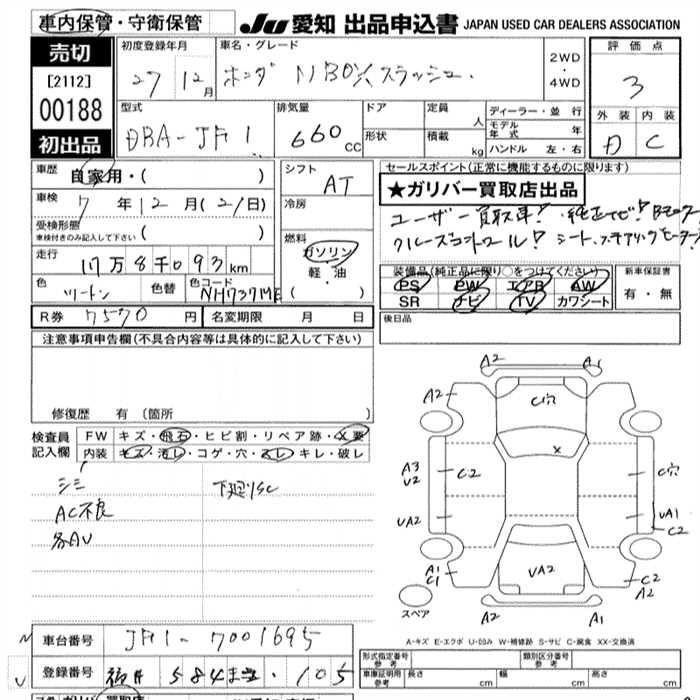 車内保管・守衛保管
JU 愛知 出品申込書 JAPAN USED CAR DEALERS ASSOCIATION
売切
[2112]
00188
初出品
初度登録年月
27 12月
車名・グレード
ホンダ NBOXスラッシュ
2WD・4WD
評価点
3
外装 内装
D C
型式
DBA-JF1
排気量
660cc
ドア
形状
定員 人
積載 kg
ディーラー・並行
モデル年式 年
ハンドル 左・右
車歴 自家用・( )
車検 7年12月(21日)
受検形態
車検付きのみ記入して下さい ( )
走行 17万8千093km
色 ツートン 色替 色コード NH737M
シフト
AT
冷房
燃料
ガソリン
軽・油
( )
セールスポイント(正常に機能するものに限ります)
★ガリバー買取店出品
ユーザー買取車! 純正ナビ! Bモニター
クルーズコントロール! シート、ステアリングヒーター
装備品(純正品に限り○をつけてください)
PS PW エアB AW
SR ナビ TV カワシート
新車保証書
有・無
R券 7570円 名変期限 月 日
後日品
注意事項申告欄(不具合内容等は具体的に記入して下さい)
修復歴 有 (箇所 )
検査員記入欄
FW キズ・飛石・ヒビ割・リペア跡・X要
内装 キズ・汚レ・コゲ・穴・スレ・キレ・破レ
シミ 下廻りSC
AC不良
各AU
A2 A1
A2 C穴
X
A3
U2
C2 C穴
UA2 UA1
C2
A1
C1
UA2 C2
A2
A2 A1
スペア
A-キズ E-エクボ U-凹み W-補修跡 S-サビ C-腐食 XX-交換済
車台番号 JF1-7001695
登録番号 福井 584 105
形式指定番号
参考
類別区分番号
参考
車庫証明用
参考
長さ 幅 高さ